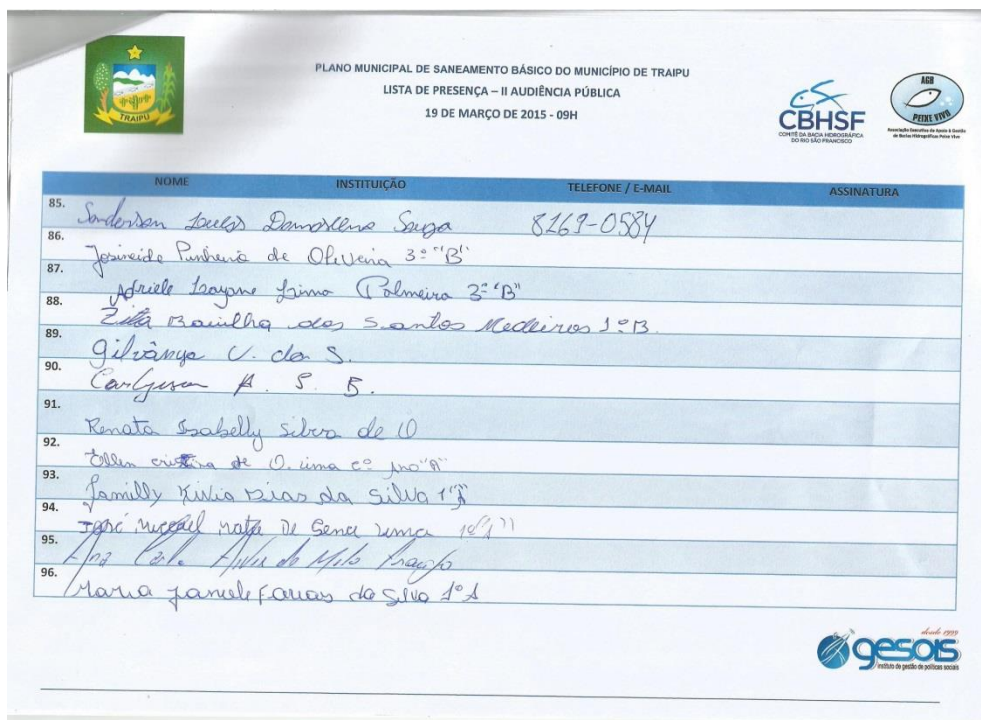 PLANO MUNICIPAL DE SANEAMENTO BÁSICO DO MUNICÍPIO DE TRAIPU
LISTA DE PRESENÇA – II AUDIÊNCIA PÚBLICA
19 DE MARÇO DE 2015 - 09H
TRAIPU
CBHSF
COMITÊ DA BACIA HIDROGRÁFICA
DO RIO SÃO FRANCISCO
AGB
PEIXE VIVO
Associação Executiva de Apoio à Gestão
de Bacias Hidrográficas Peixe Vivo
NOME INSTITUIÇÃO TELEFONE / E-MAIL ASSINATURA
85. Sanderson Souza 8263-0584
86. Josineide Pinheiro de Oliveira 3º "B"
87. Adriele Layane Lima Palmeira 3º "B"
88. Zita dos Santos Medeiros 1º B.
89. Gilvânya V. da S.
90. A. S. B.
91. Renata Isabelly Silva de O
92. Ellen cristina de O. Lima "A"
93. Jamilly Kivia Dias da Silva 1º"A"
94. José mata De Sena Lima
95. Ana Carla Alves de Melo Araújo
96. Maria Janiele Farias da Silva 1º A
desde 1999
gesois
instituto de gestão de políticas sociais